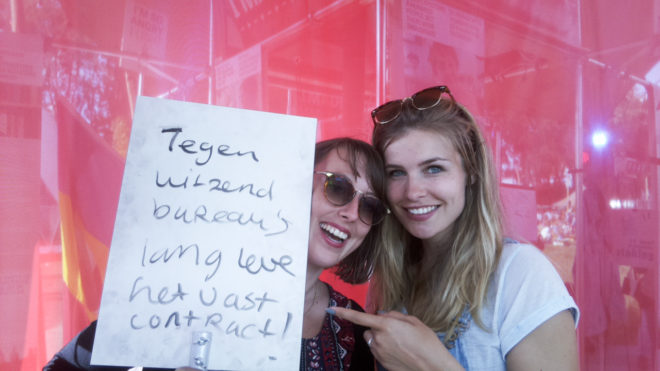 Tegen
uitzend
bureau's
lang leve
het vast
contract!